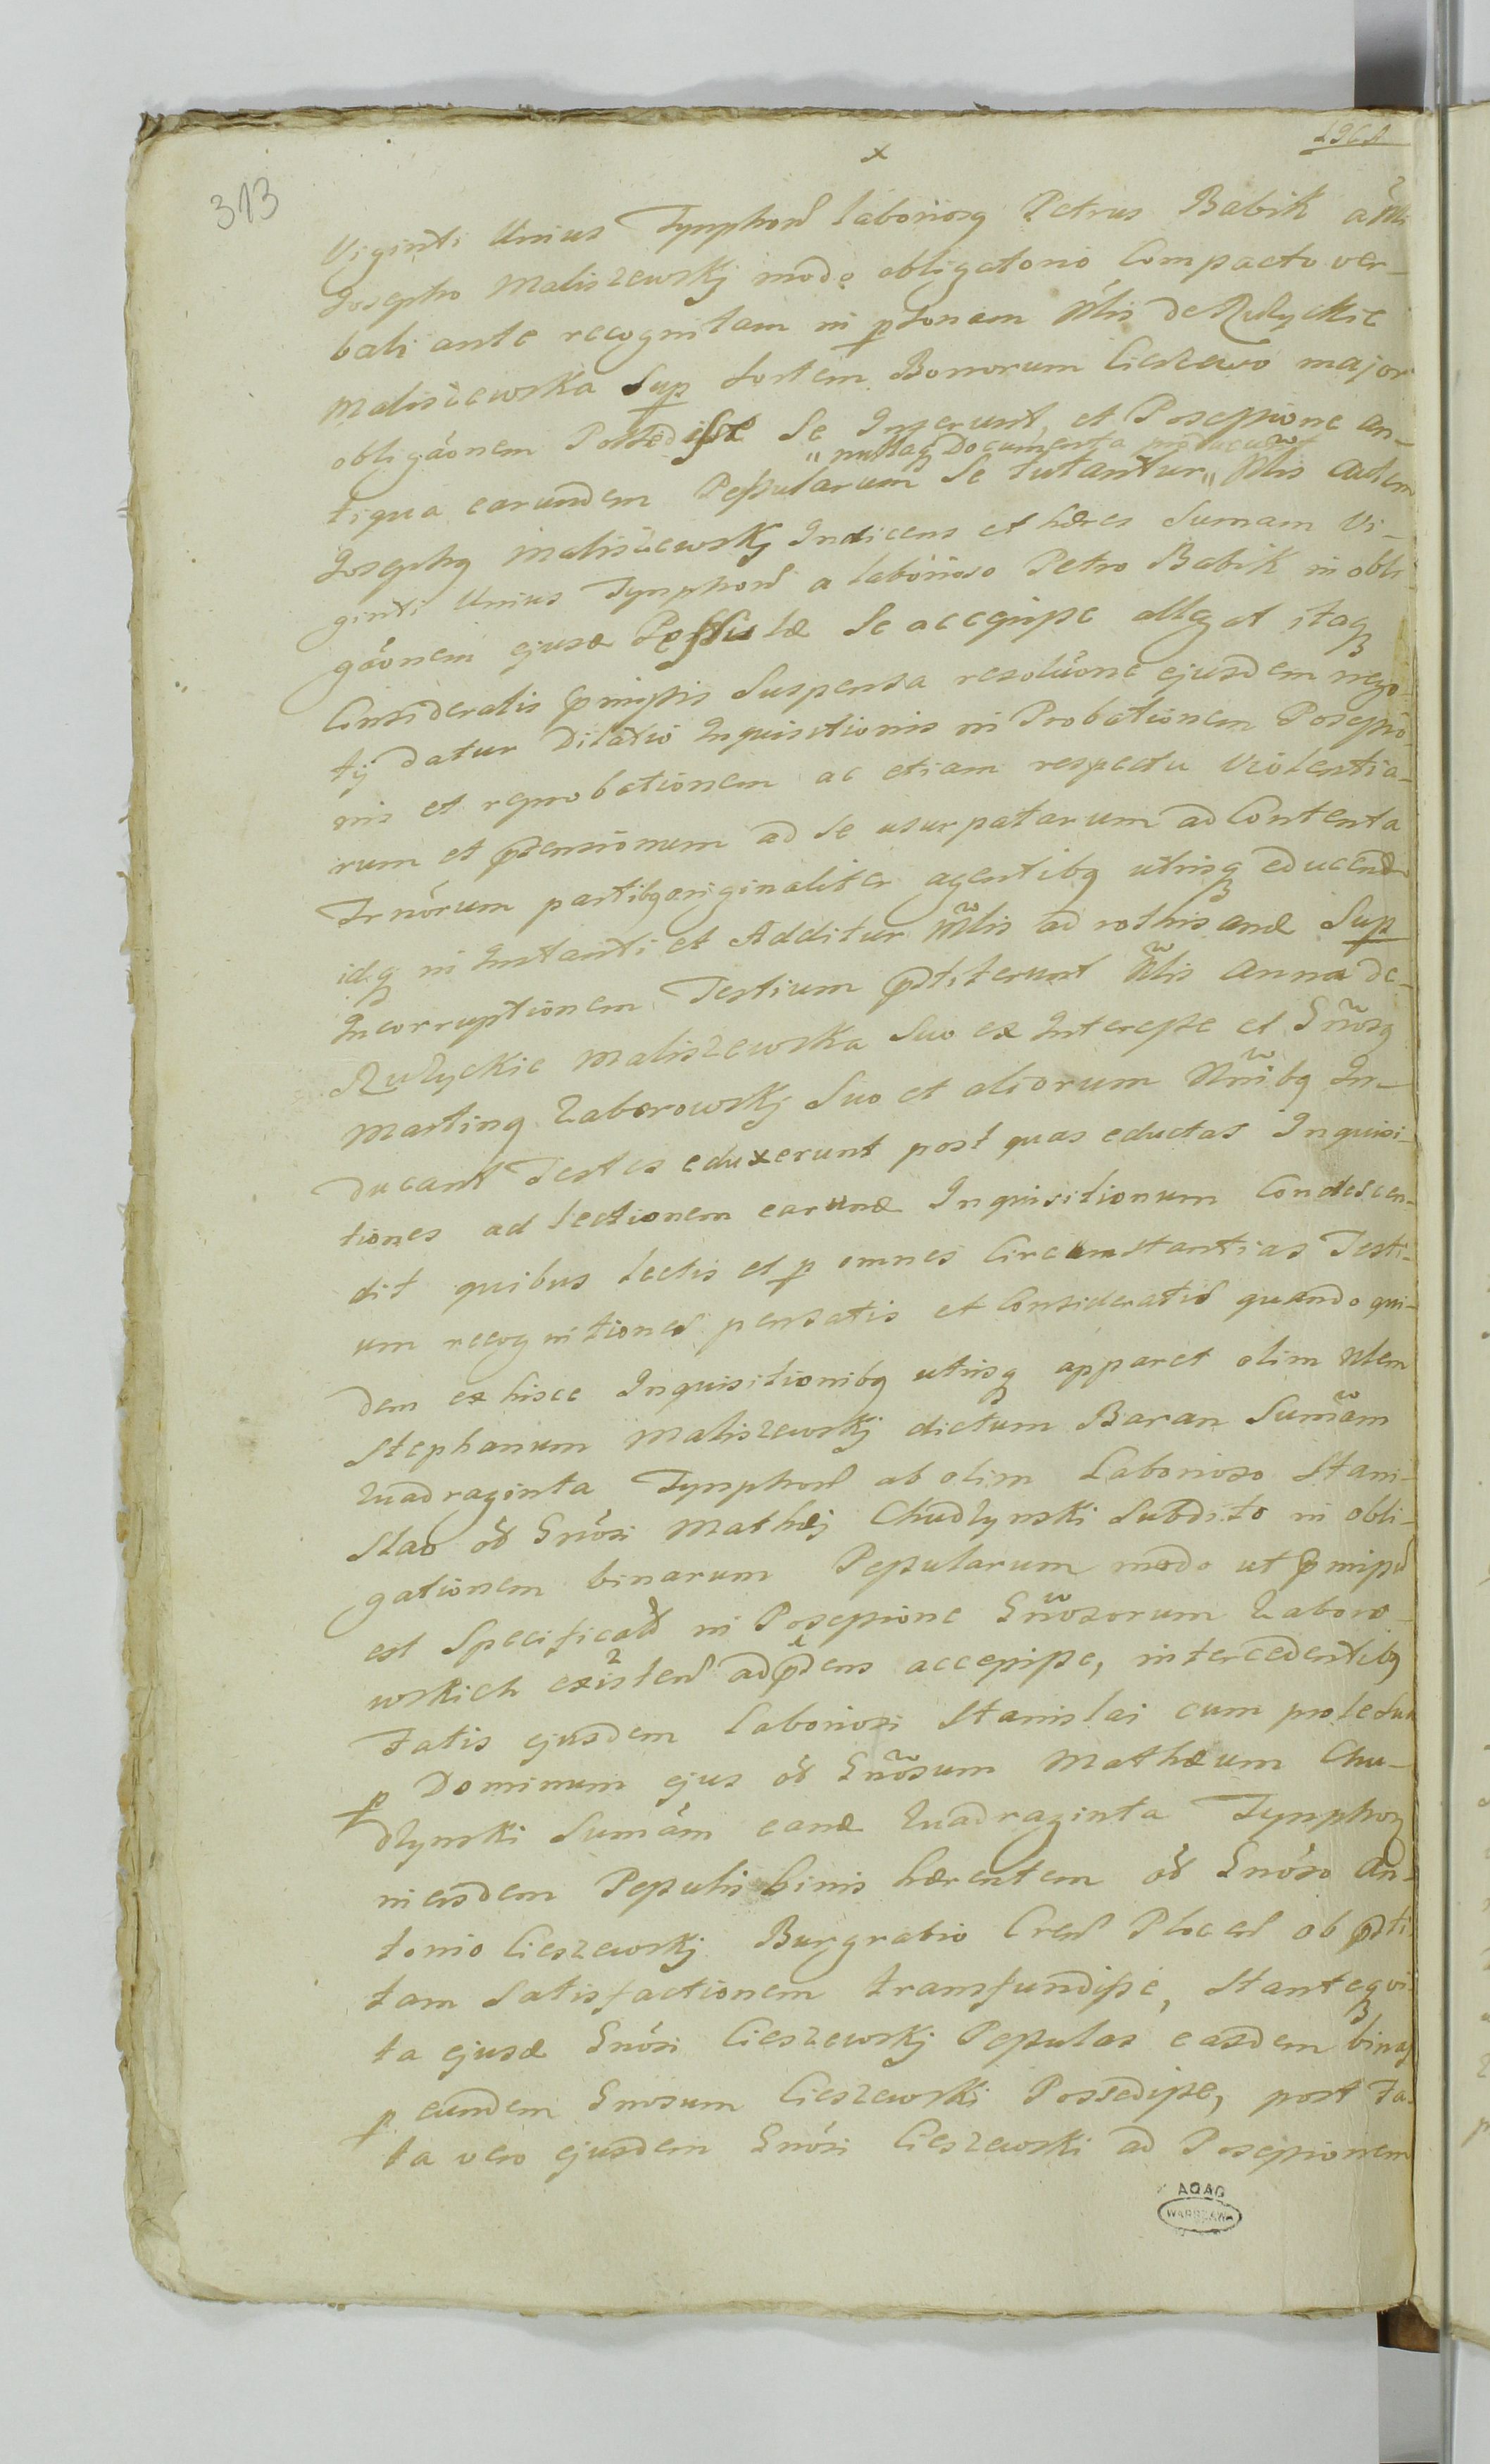 313
x
Viginti Unius Tynphorũ laboriosq Petrus Babik a Mli
Josepho Maliszewskj modo obligatorio Compacto ver-
bali ante recognitam in psonam Mlis de Rulyckie
Maliszewska Sup sortem Bonorum Cieszewo major
obligãonem Possedisse Se Inserunt, et Posessione an-
„nullaq Documenta producunt
tiqua earundem Pessularum Se tutantur„ Mlis autem
Josephq Maliszewskj Indicens et hæres Sumam Vi-
ginti Unius Tynphorũ a laborioso Petro Babik in obli
gãonem ejusd Pessulæ Se accepisse allegat itaq
Consideratis pmissis Suspensa resolũone ejusdem nego-
tij datur Dilatio Inquisitionis in Probationem Posessio-
nis et reprobationem ac etiam respectu Violentia-
rum et ptensionum ad se usurpatarum ad Contenta
Trnõrum partibq originaliter agentibq utrisq educend
idq in Instanti et Additur Mlis ad rothisand Sup
Incorruptionem Testium pstiterunt Mlis Anna de-
Rulyckie Maliszewska Suo ex Interesse et Gnosq
Martinq Zaborowskj Suo et aliorum Nnibq In-
ducant Testes eduxerunt post quas eductas Inquisi-
tiones ad lectionem earund Inquisitionum Condescen-
dit quibus lectis et p omnes Circumstantias Testi-
um recognitiones pensatis et Consideratis quando qui-
dem ex hisce Inquisitionibq utrisq apparet olim Mlem
Stephanum Maliszewskj dictum Baran Sumam
Quadraginta Tynphorũ ab olim Laborioso Stani-
slao ol Gnosi Mathæj Chudzynski Subdito in obli-
gationem binarum Pessularum modo ut pmissũ
est Specificatũ in Posessione Gnosorum Zaboro-
wskich existeñ ad pdens accepisse, intercedentibq
Fatis ejusdem Laboriosi Stanislai cum prole Sua
p Dominum ejus ol Gnosum Mathæum Chu-
dzynski Sumam eand Quadraginta Tynphorq
in eisdem Pessulis binis hærentem ol Gnoso An-
tonio Cieszewskj Burgrabio Creũ Plocen ob psti
tam Satisfactionem transfundisse, Stanteqvi-
ta ejusd Gnosi Cieszewskj Pessulas easdem binas
p eundem Gnosum Cieszewski Possedisse, post Fa-
ta vero ejusdem Gnosi Cieszewski ad Posessionem
AGAD
WARSZAWA